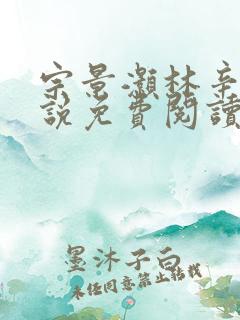 宗景灝林辛
說免費閱讀
墨沐子白
未经同意禁止转载